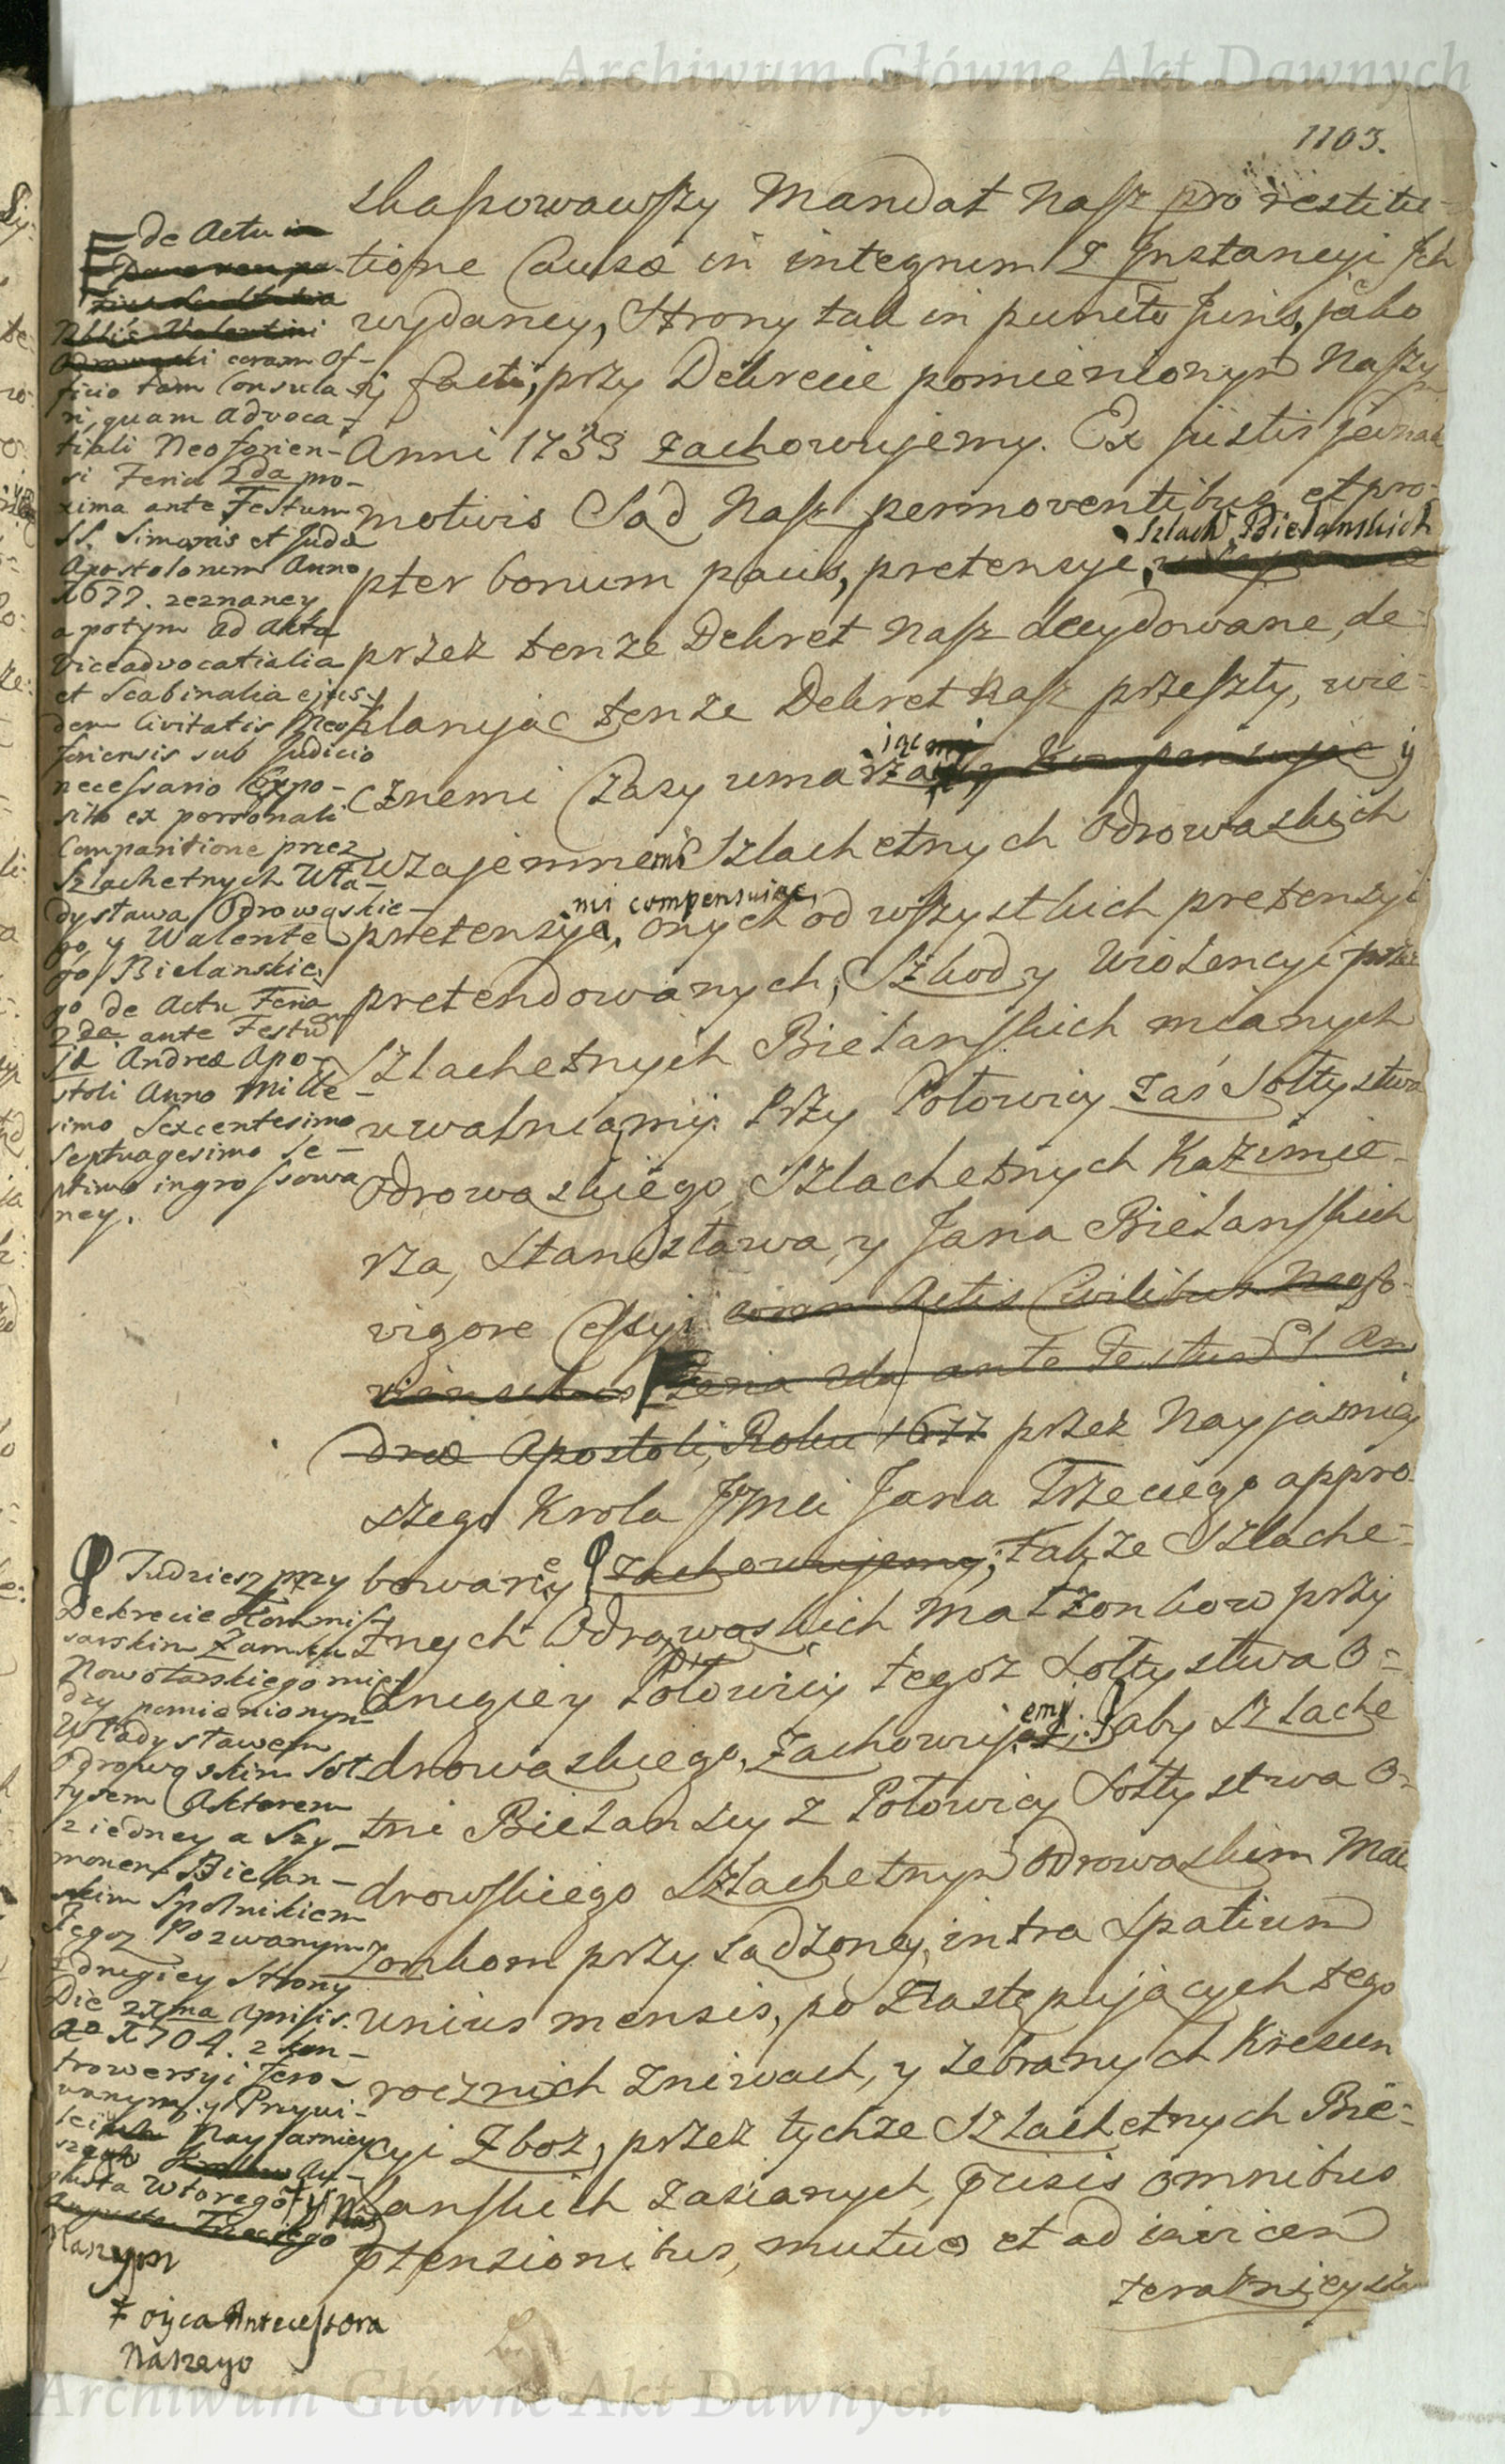 Archiwum Główne Akt Dawnych
1103.
skassowawszy Mandat Nasz pro restitu-
tione Causæ in integrum z Instancyi Ich
wydaney, Strony tak in puncto Juris, jako
y facti, przy Dekrecie pomienionym Naszym
Anni 1753 zachowujemy. Ex justis jednak
motivis Sąd Nasz permoventibus et pro-
pter bonum pacis, pretensye, Szlach. Bielanskich
przez tenże Dekret Nasz decydowane, de-
klarując tenże Dekret Nasz przeszły, wie-
cznemi Czasy umarzając y
wzajemnemi Szlachetnych Odrowąskich
pretensyami compensując, onych od wszystkich pretensyi
pretendowanych, Szkod y Violencyi przez
Szlachetnych Bielanskich mianych
uwalniamy. Przy Połowicy zaś Sołtystwa
Odrowąskiego, Szlachetnych Kazimie-
rza, Stanisława, y Jana Bielanskich
vigore Cessyi coram Actis Civilibus Neofo-
riensibus Feria 2da ante Festum S. An
dreæ Apostoli, Roku 1677 przez Nayjaśniey
szego Krola Jmci Jana Trzeciego appro-
bowaney zachowujemy; Także Szlache-
tnych Odrowąskich Małżonkow przy
drugiey Połowicy tegoż Sołtystwa O-
drowąskiego, zachowujemy; aby Szlache
tni Bielanscy z Połowicy Sołtystwa O-
drowskiego Szlachetnym Odrowąskim Mał
żonkom przysądzoney, intra Spatium
unius mensis, po następujących tego
rocznich żniwach, y zebranych Kresceń
cyi Zboz, przez tychże Szlachetnych Bie-
lanskich zasianych, cæsis omnibus
ptensionibus, mutuo et ad invicem
teraźnieysz
de Actu in
Nblis Valentini
coram Of-
ficio tam Consula-
ri, quam Advoca-
tiali Neoforien-
si Feria 2da pro-
xima ante Festum
SS. Simonis et Judæ
Apostolorum Anno
1677. zeznaney
a potym ad Akta
Viceadvocatialia
et Scabinalia ejus-
dem Civitatis Neo-
foriensis sub Judicio
necessario Expo-
sito ex personali
Comparitione przez
Szlachetnych Wła-
dysława Odrowąskie-
go, y Walente-
go Bielanskie-
go de Actu Feria
2da ante Festum
S. Andreæ Apo-
stoli Anno Mille-
simo Sexcentesimo
Septuagesimo Se-
ptimo ingrossowa
ney.
Tudziesz przy
Dekrecie Kommis-
sarskim Zamku
Nowotarskiego mię
dzy pomienionym
Władysławem
Odrowąskim Soł
tysem Aktorem
z iedney a Szy-
monem Bielan-
skim Spolnikiem
Jegoz Pozwanym
z drugiey Strony
Die 22ma Aprilis
Ao 1704. z kon-
trowersyi fero-
wanym, y Przywi-
leiem Nayjasniey
szego Au-
gusta Wtorego
Augusta Trzeciego
Naszym
‡ oyca Antecessora
Naszego
Archiwum Główne Akt Dawnych